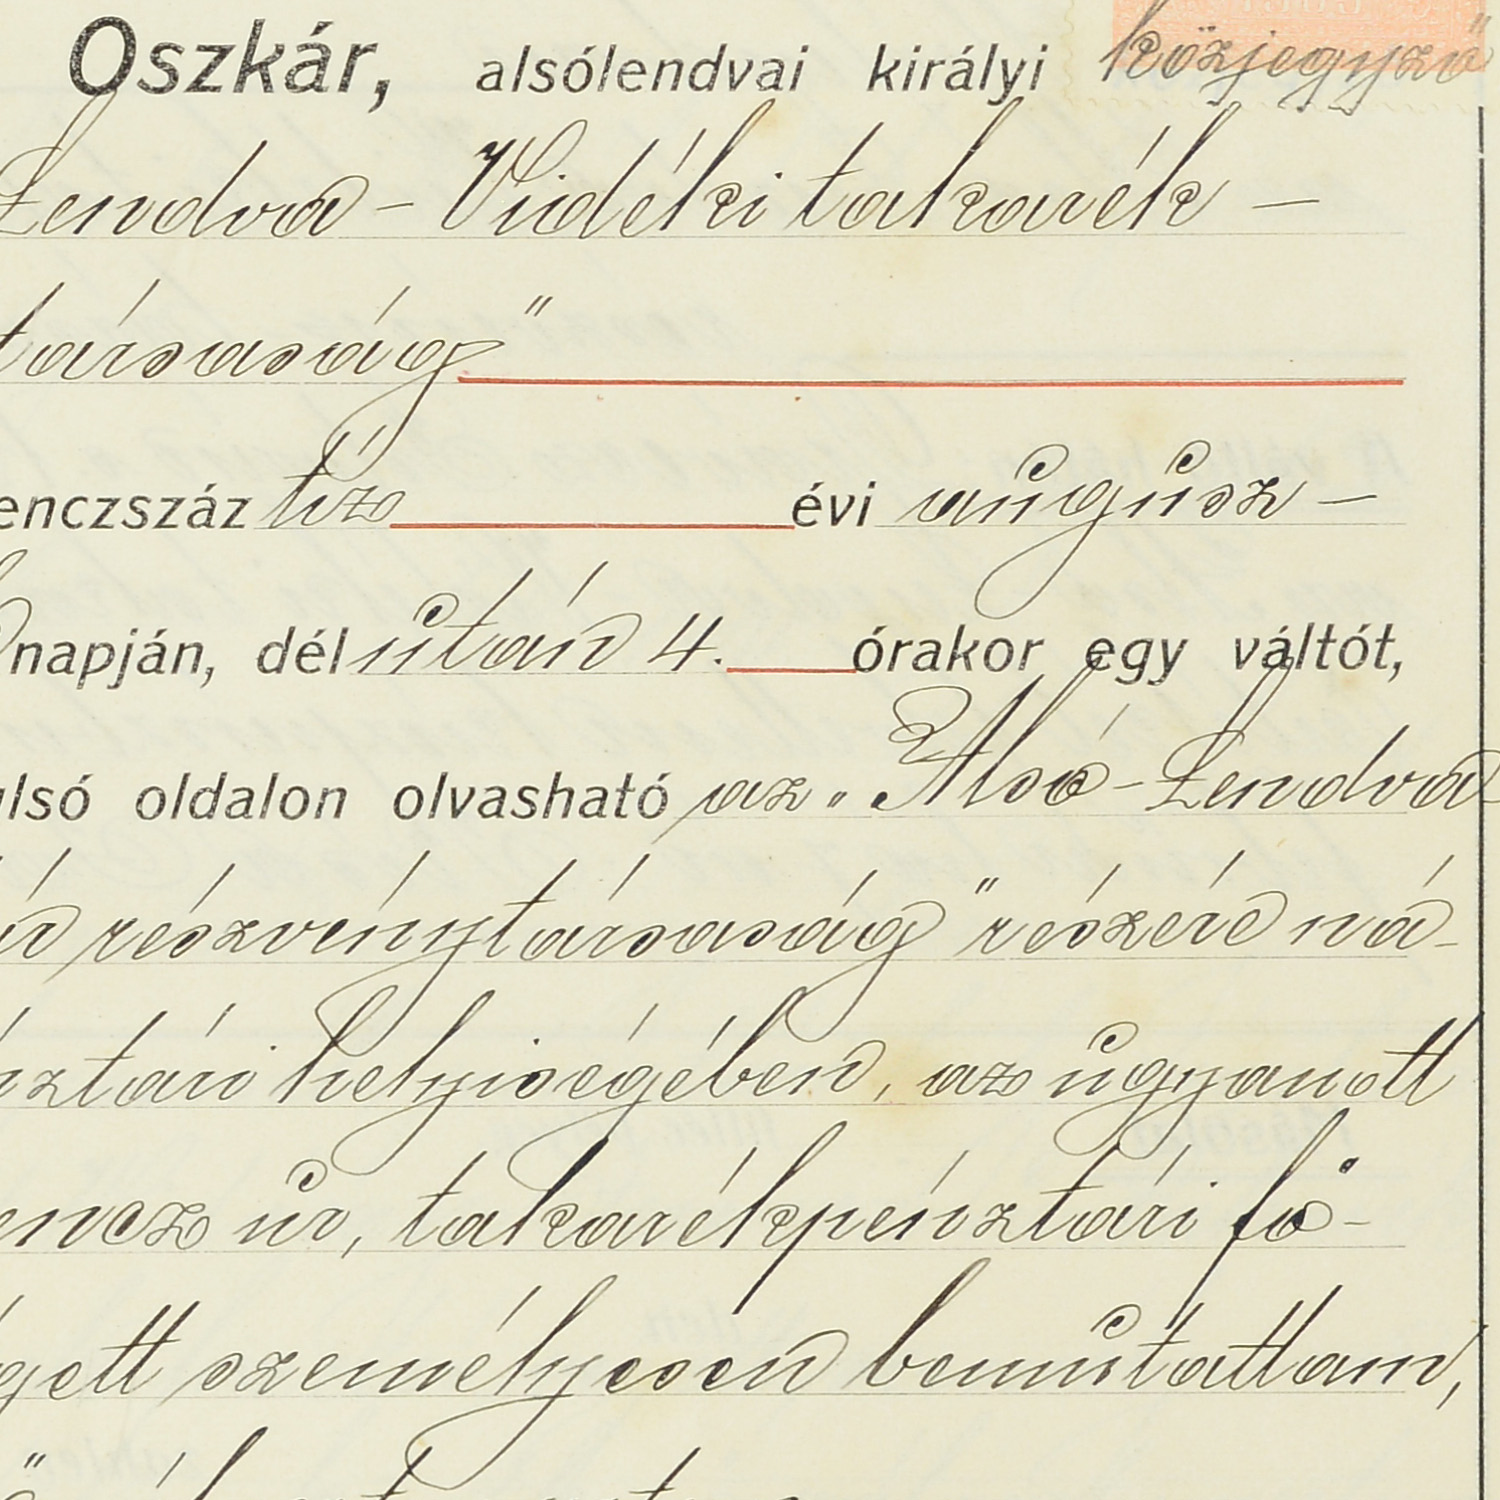 Oszkár, alsólendvai királyi közjegyző
Lendva - Vidéki takarék -
társaság"
enczszáz tíz évi augusz -
napján, dél után 4. órakor egy váltót,
alsó oldalon olvasható az „Alsó-Lendva
részvénytársaság" részére ná-
nztári helyiségében, az ugyanott
encz úr, takarékpénztári fő-
gett személyesen bemutattam,